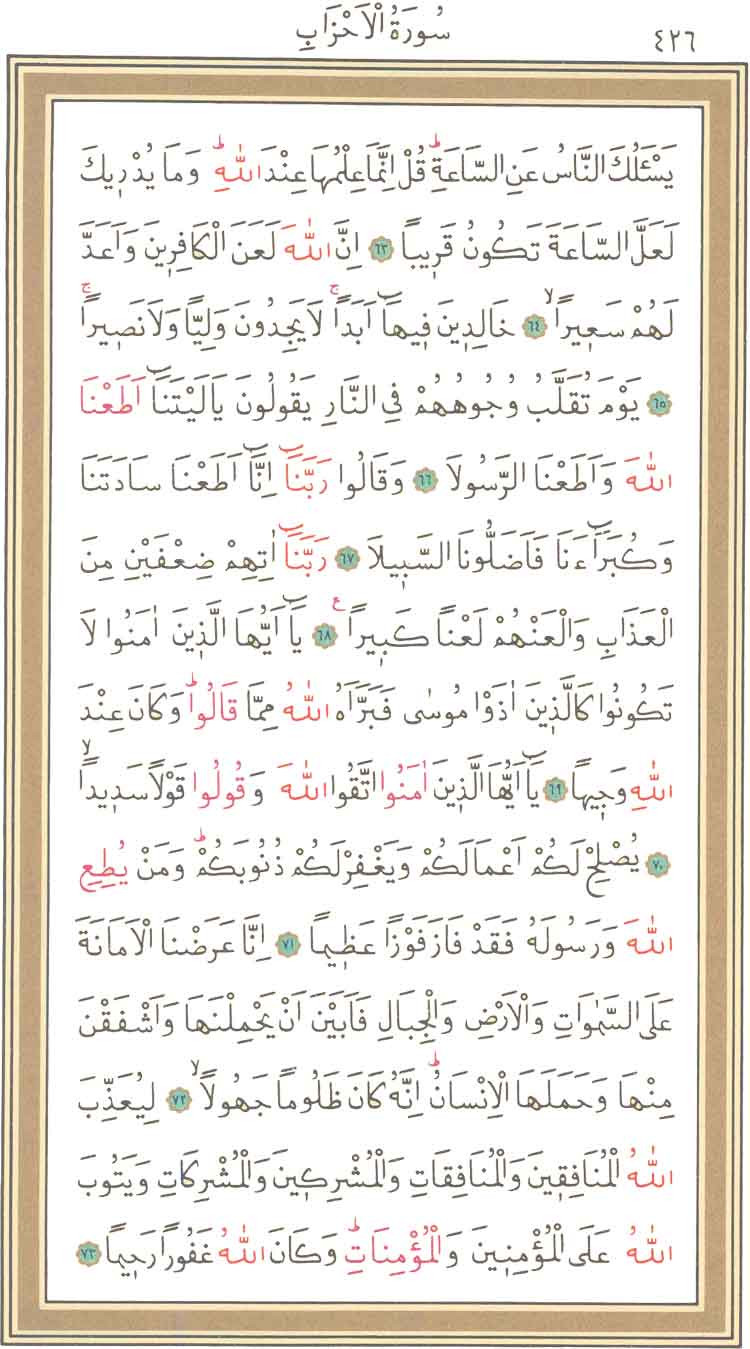 سُورَةُ الْاَحْزَابِ
٤٢٦
يَسْـَٔلُكَ النَّاسُ عَنِ السَّاعَةِۜ قُلْ اِنَّمَا عِلْمُهَا عِنْدَ اللّٰهِۜ وَمَا يُدْر۪يكَ
لَعَلَّ السَّاعَةَ تَكُونُ قَر۪يباً ٦٣ اِنَّ اللّٰهَ لَعَنَ الْكَافِر۪ينَ وَاَعَدَّ
لَهُمْ سَع۪يراًۙ ٦٤ خَالِد۪ينَ ف۪يهَٓا اَبَداًۚ لَا يَجِدُونَ وَلِياًّ وَلَا نَص۪يراًۚ
٦٥ يَوْمَ تُقَلَّبُ وُجُوهُهُمْ فِي النَّارِ يَقُولُونَ يَا لَيْتَنَٓا اَطَعْنَا
اللّٰهَ وَاَطَعْنَا الرَّسُولَا ٦٦ وَقَالُوا رَبَّنَٓا اِنَّٓا اَطَعْنَا سَادَتَنَا
وَكُبَرَٓاءَنَا فَاَضَلُّونَا السَّب۪يلَا ٦٧ رَبَّنَٓا اٰتِهِمْ ضِعْفَيْنِ مِنَ
الْعَذَابِ وَالْعَنْهُمْ لَعْناً كَب۪يراًࣖ ٦٨ يَٓا اَيُّهَا الَّذ۪ينَ اٰمَنُوا لَا
تَكُونُوا كَالَّذ۪ينَ اٰذَوْا مُوسٰى فَبَرَّاَهُ اللّٰهُ مِمَّا قَالُواۜ وَكَانَ عِنْدَ
اللّٰهِ وَج۪يهاً ٦٩ يَٓا اَيُّهَا الَّذ۪ينَ اٰمَنُوا اتَّقُوا اللّٰهَ وَقُولُوا قَوْلاً سَد۪يداًۙ
٧٠ يُصْلِحْ لَكُمْ اَعْمَالَكُمْ وَيَغْفِرْ لَكُمْ ذُنُوبَكُمْۜ وَمَنْ يُطِعِ
اللّٰهَ وَرَسُولَهُ فَقَدْ فَازَ فَوْزاً عَظ۪يماً ٧١ اِنَّا عَرَضْنَا الْاَمَانَةَ
عَلَى السَّمٰوَاتِ وَالْاَرْضِ وَالْجِبَالِ فَاَبَيْنَ اَنْ يَحْمِلْنَهَا وَاَشْفَقْنَ
مِنْهَا وَحَمَلَهَا الْاِنْسَانُۜ اِنَّهُ كَانَ ظَلُوماً جَهُولاًۙ ٧٢ لِيُعَذِّبَ
اللّٰهُ الْمُنَافِق۪ينَ وَالْمُنَافِقَاتِ وَالْمُشْرِك۪ينَ وَالْمُشْرِكَاتِ وَيَتُوبَ
اللّٰهُ عَلَى الْمُؤْمِن۪ينَ وَالْمُؤْمِنَاتِۜ وَكَانَ اللّٰهُ غَفُوراً رَح۪يماً ٧٣